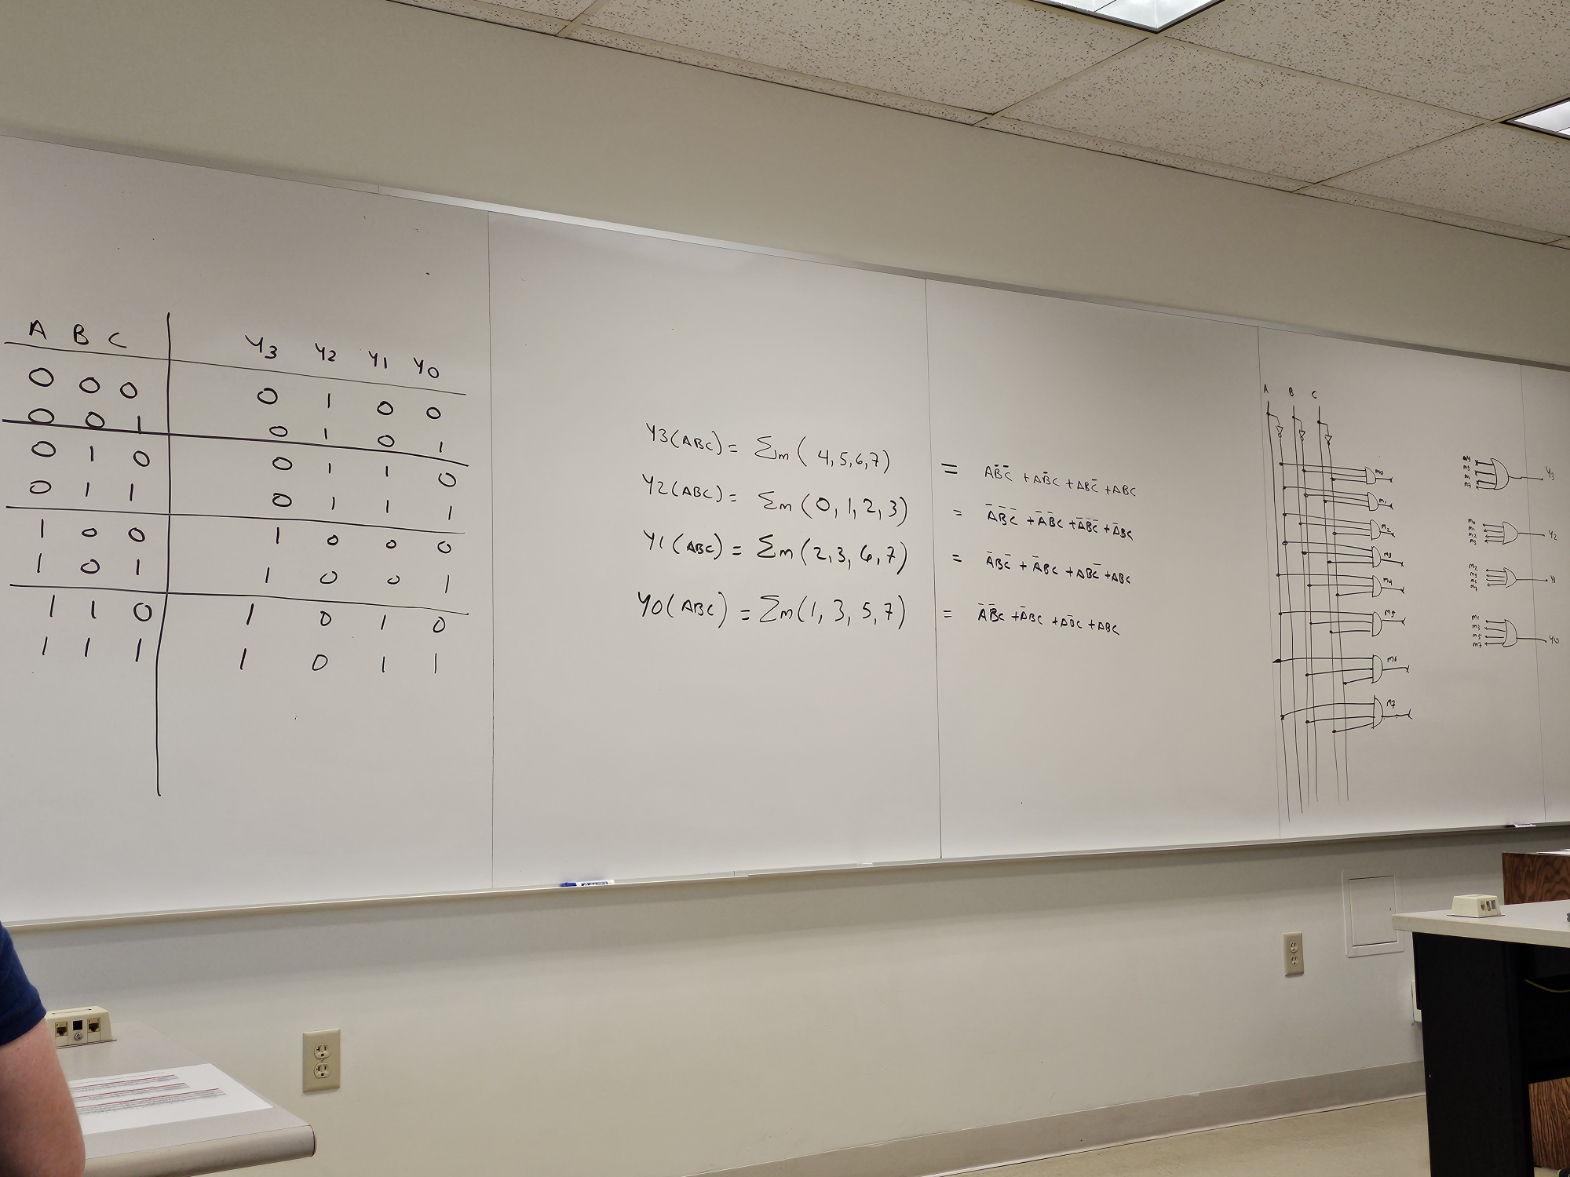 A B C Y3 Y2 Y1 Y0
0 0 0 0 1 0 0
0 0 1 0 1 0 1
0 1 0 0 1 1 0
0 1 1 0 1 1 1
1 0 0 1 0 0 0
1 0 1 1 0 0 1
1 1 0 1 0 1 0
1 1 1 1 0 1 1
Y3(ABC) = Σm(4,5,6,7) = AB̅C̅ + AB̅C + ABC̅ + ABC
Y2(ABC) = Σm(0,1,2,3) = A̅B̅C̅ + A̅B̅C + A̅BC̅ + A̅BC
Y1(ABC) = Σm(2,3,6,7) = A̅BC̅ + A̅BC + ABC̅ + ABC
Y0(ABC) = Σm(1,3,5,7) = A̅B̅C + A̅BC + AB̅C + ABC
A B C
m0
m1
m2
m3
m4
m5
m6
m7
Y3
Y2
Y1
Y0